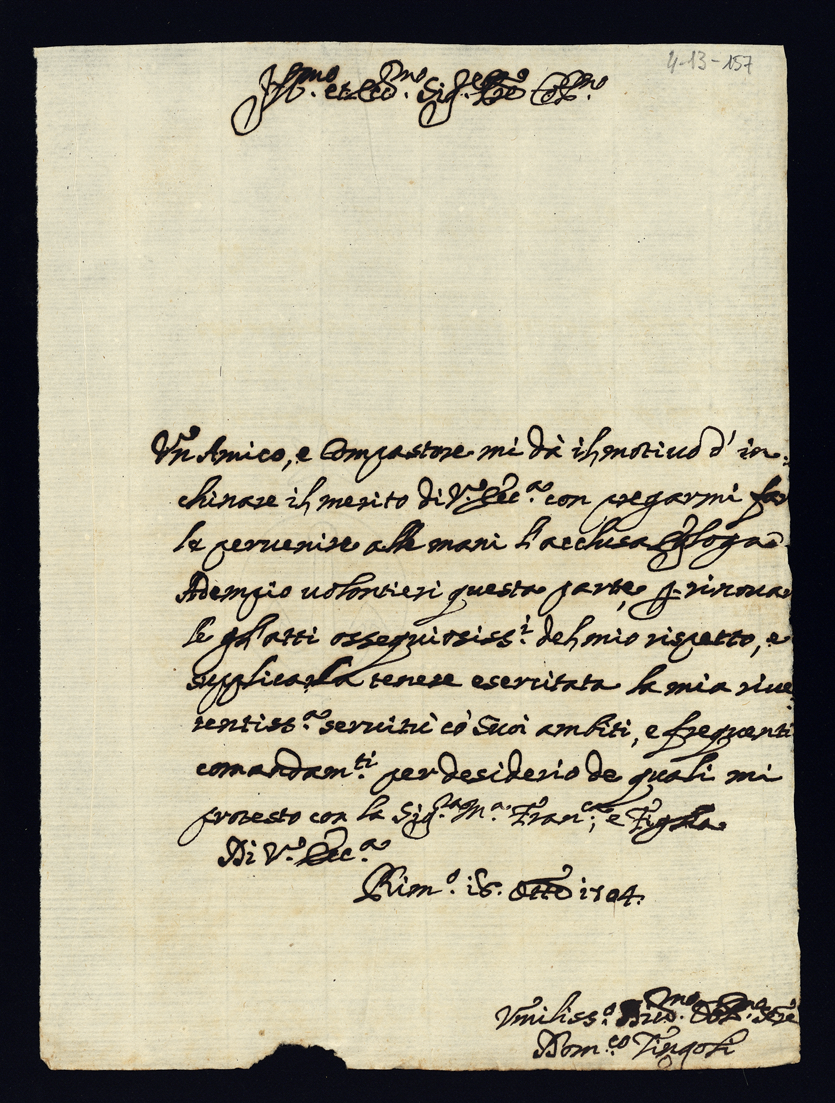 4-13-157
Ill.mo et Ecc.mo Sig.re Pr͠o͠ Col.mo
Un Amico, e Compastore mi dà il motivo d' in-
chinare il merito di V.ª Ecc.ª con pregarmi far
le pervenire alle mani l'acclusa Egloga
Adempio volontieri questa parte, p rinovar
le gl'atti ossequiosiss.i del mio rispetto, e
supplicarla tenere esercitata la mia rive
rentiss.ª servitù co' Suoi ambiti, e frequenti
comandam.ti per desiderio de quali mi
protesto con la Sig.ra M.ª Fran.ca, e Figlia
Di V.ª Ecc.ª
Rim.o 16. Ottò 1704.
Umiliss.o Divo.mo Obl.mo Sre
Dom.co Tingoli